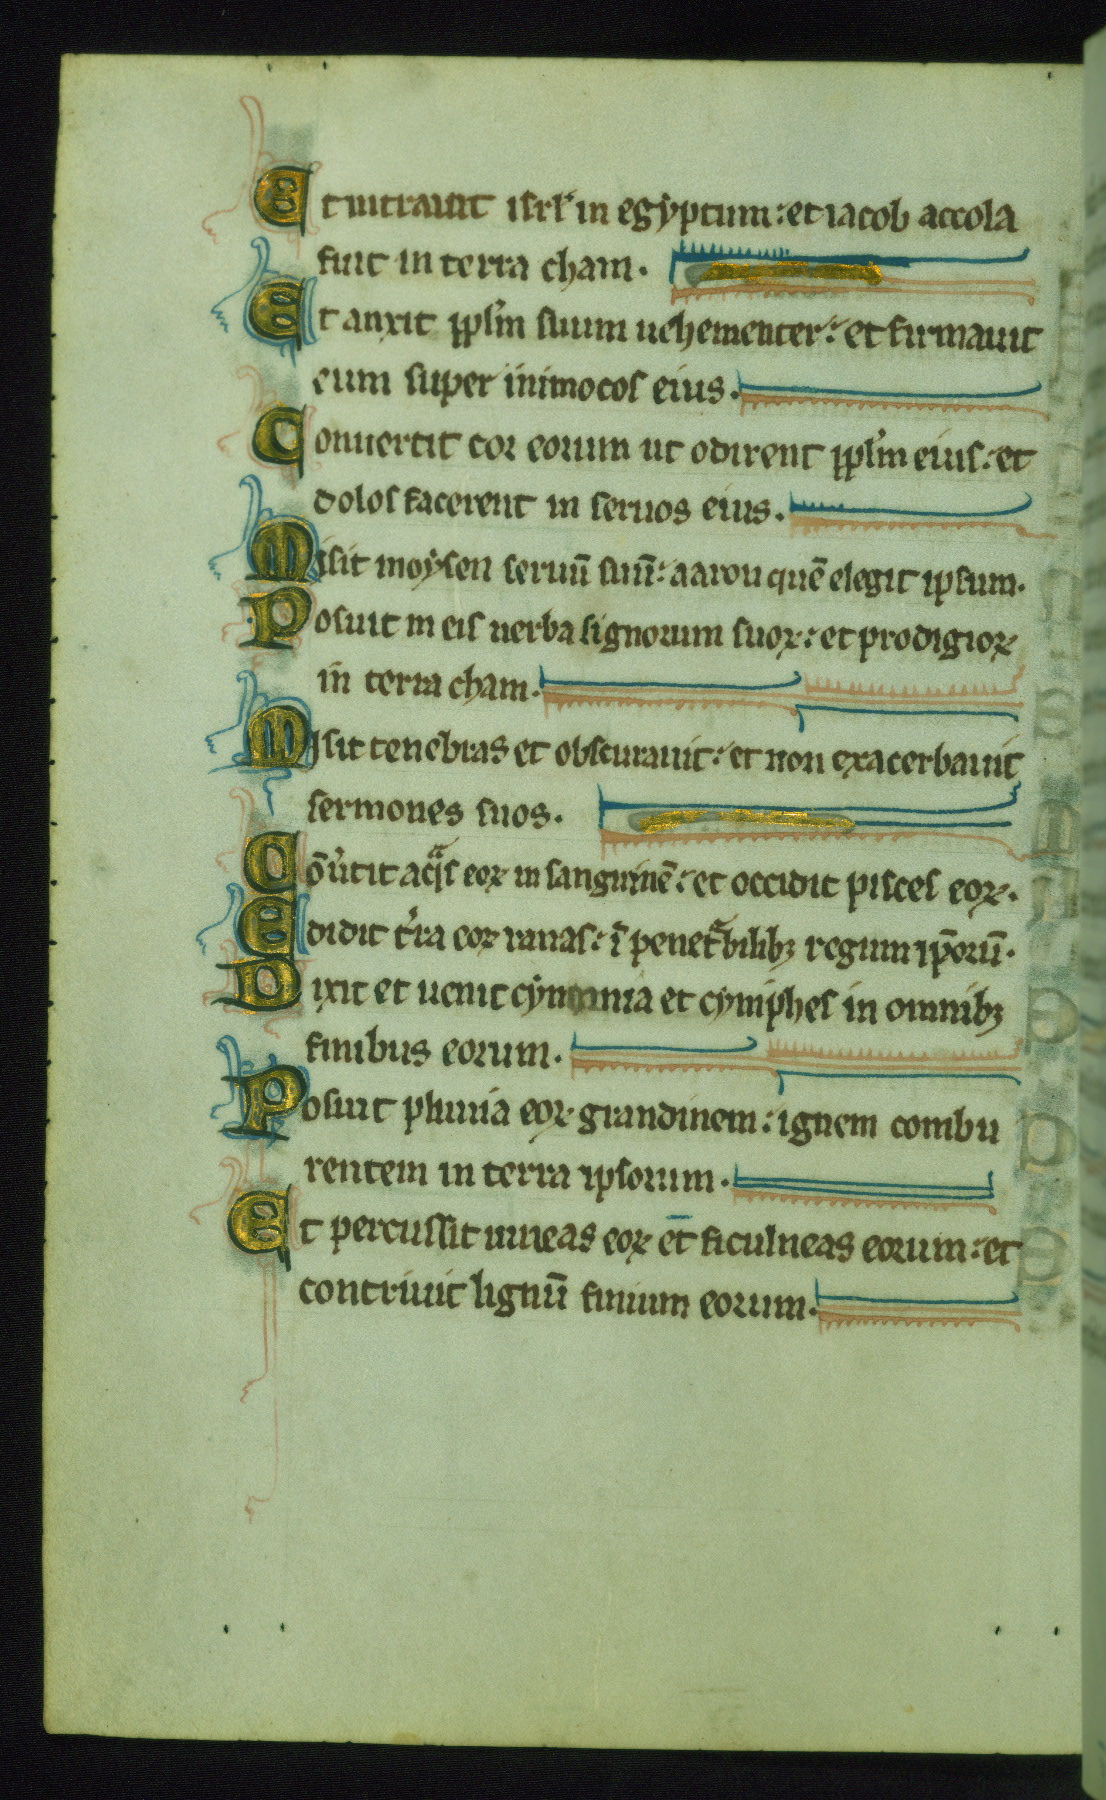 Et intrauit isrl' in egẏptum: et iacob accola
fuit in terra cham.
Et auxit ppl'm suum uehementer: et firmauit
eum super inimocos eius.
Conuertit cor eorum ut odirent ppl'm eius: et
dolos facerent in seruos eius.
Misit moẏsen seruū suū: aaron quē elegit ipsum.
Posuit in eis uerba signorum suoꝝ: et prodigioꝝ
in terra cham.
Misit tenebras et obscurauit: et non exacerbauit
sermones suos.
Cōu'tit aqͣs eoꝝ in sanguinē: et occidit pisces eoꝝ.
Edidit t'ra eoꝝ ranas: ī penetͣbilibꝫ regum ip̄orū.
Dixit et uenit cẏnomia et cyniphes in omnibꝫ
finibus eorum.
Posuit pluuia eoꝝ grandinem: ignem combu
rentem in terra ipsorum.
Et percussit uineas eoꝝ et̄ ficulneas eorum: et
contriuit lignū finium eorum.